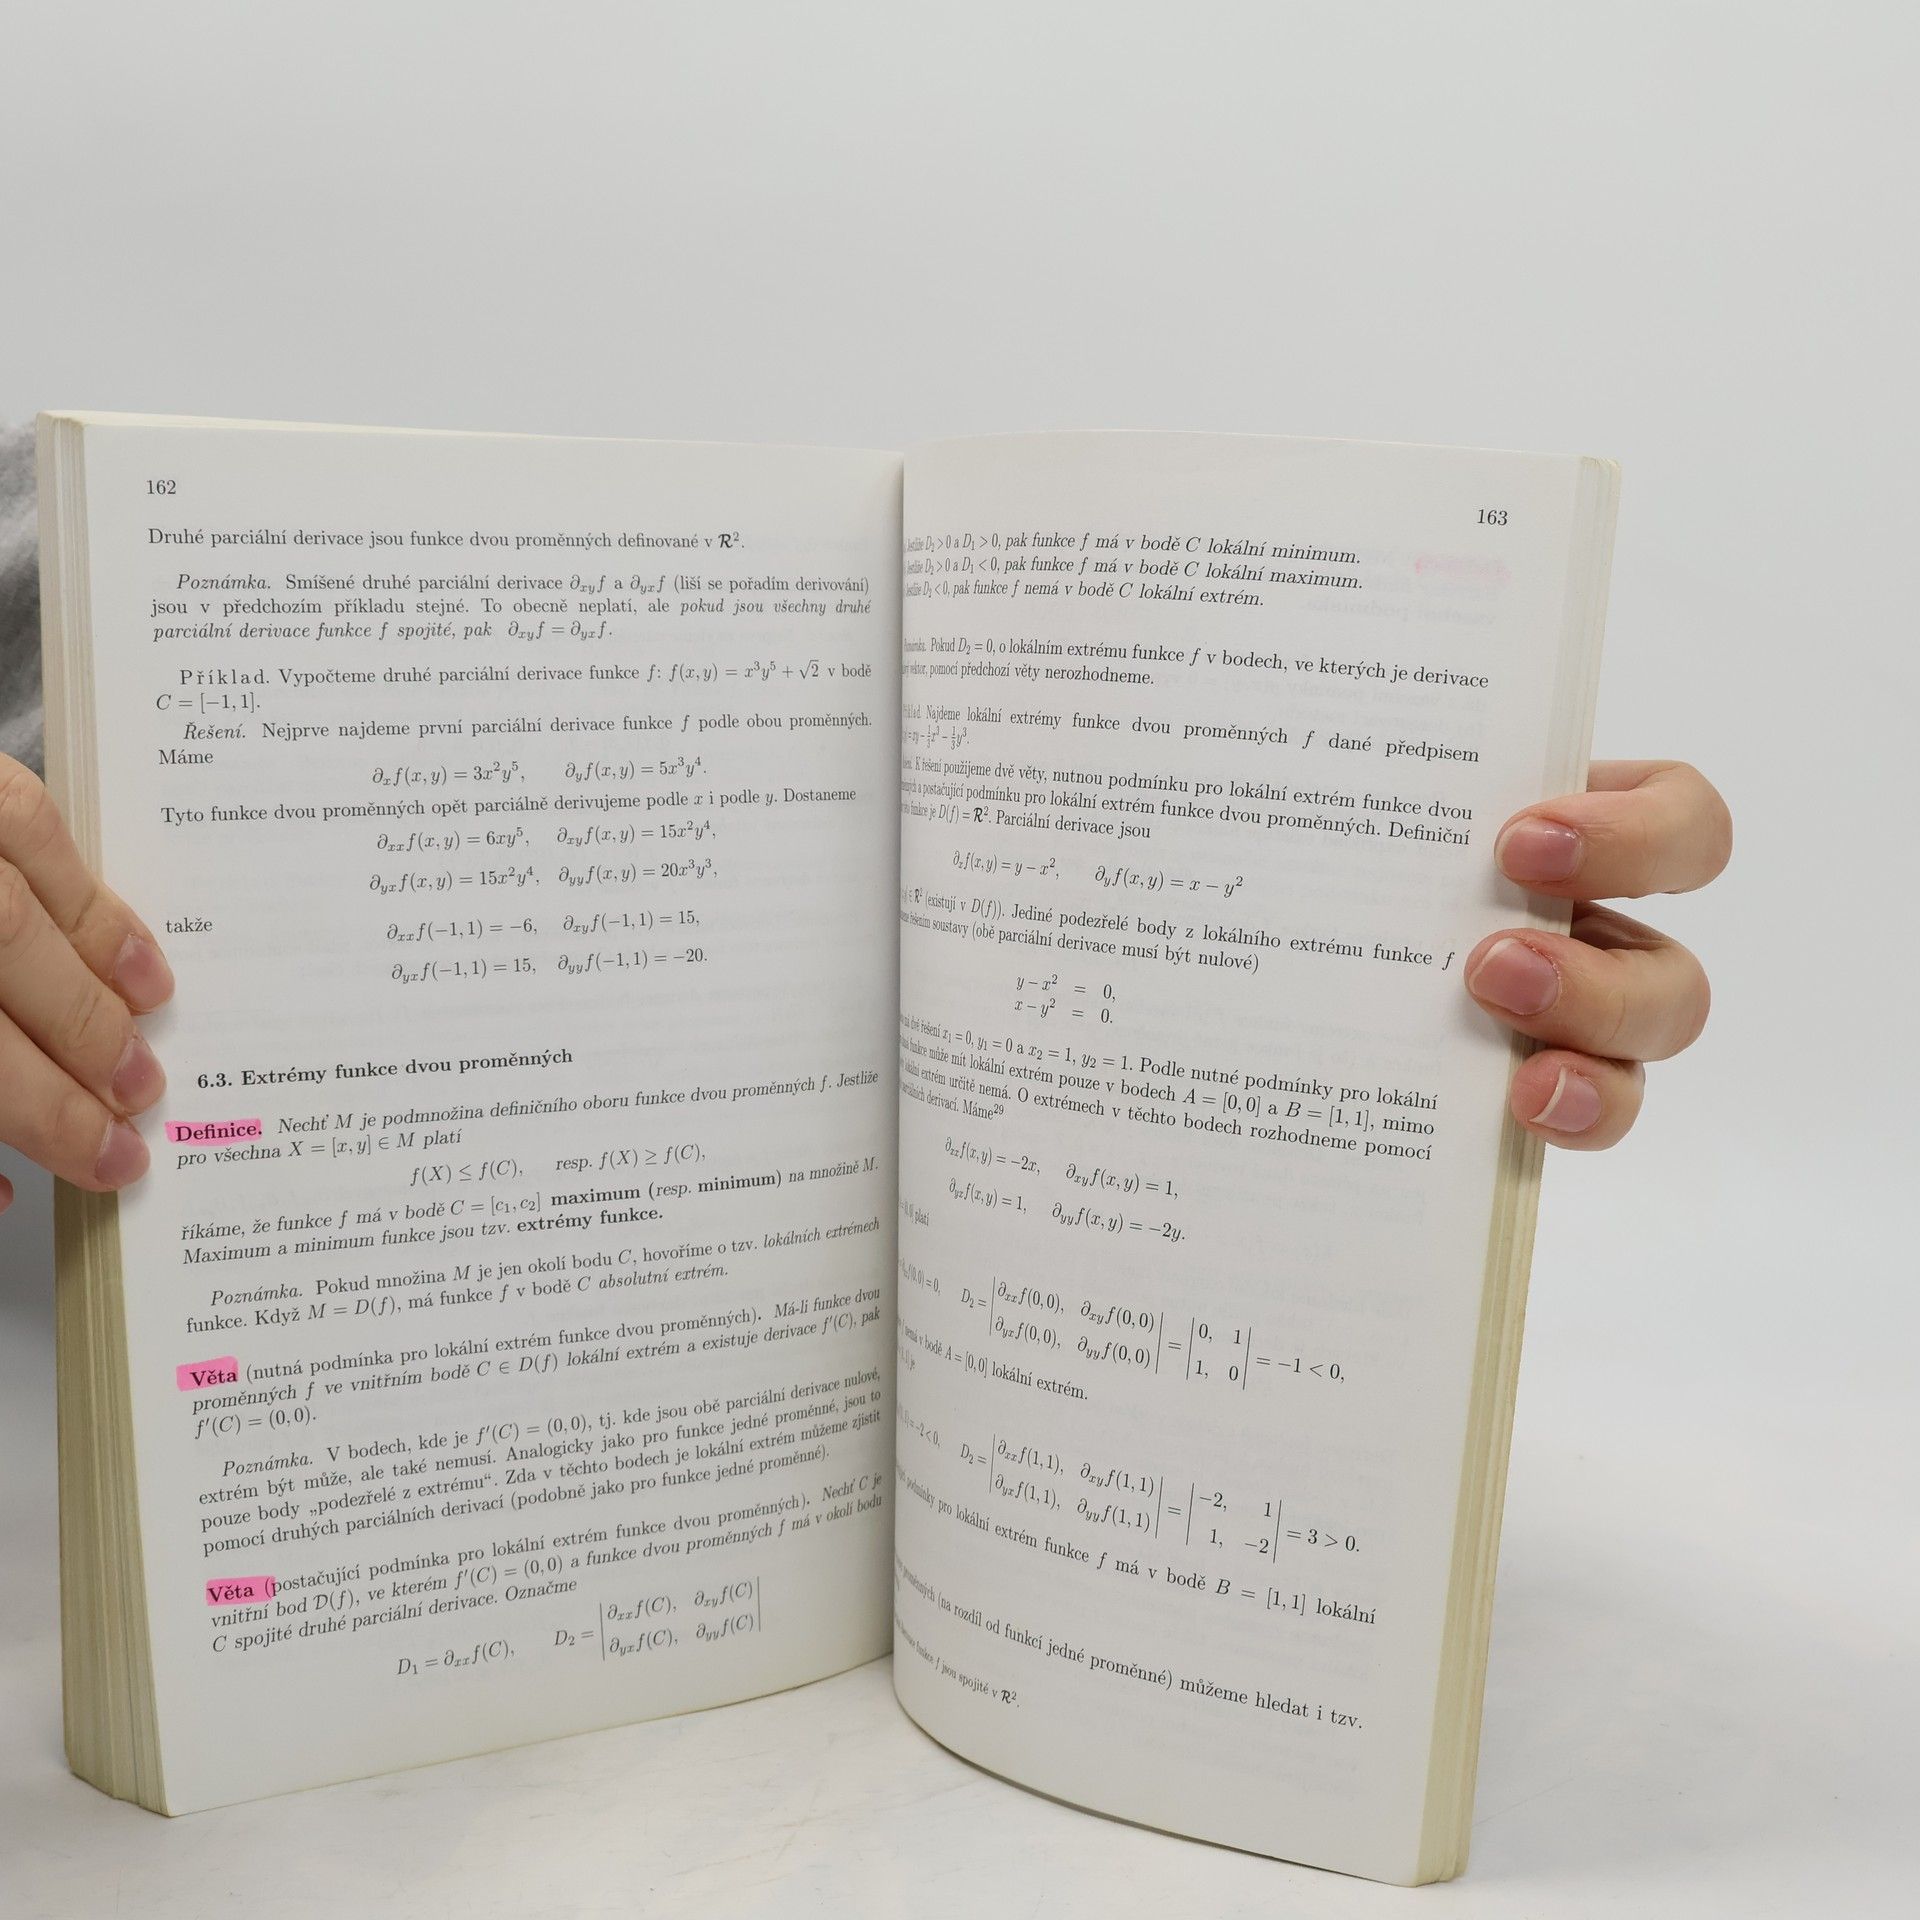 162
Druhé parciální derivace jsou funkce dvou proměnných definované v R².
Poznámka. Smíšené druhé parciální derivace ∂xyf a ∂yxf (liší se pořadím derivování)
jsou v předchozím příkladu stejné. To obecně neplatí, ale pokud jsou všechny druhé
parciální derivace funkce f spojité, pak ∂xyf = ∂yxf.
Příklad. Vypočteme druhé parciální derivace funkce f: f(x,y) = x³y⁵ + √2 v bodě
C = [−1, 1].
Řešení. Nejprve najdeme první parciální derivace funkce f podle obou proměnných.
Máme
∂xf(x,y) = 3x²y⁵, ∂yf(x,y) = 5x³y⁴.
Tyto funkce dvou proměnných opět parciálně derivujeme podle x i podle y. Dostaneme
∂xxf(x,y) = 6xy⁵, ∂xyf(x,y) = 15x²y⁴,
∂yxf(x,y) = 15x²y⁴, ∂yyf(x,y) = 20x³y³,
takže ∂xxf(−1,1) = −6, ∂xyf(−1,1) = 15,
∂yxf(−1,1) = 15, ∂yyf(−1,1) = −20.
6.3. Extrémy funkce dvou proměnných
Definice. Nechť M je podmnožina definičního oboru funkce dvou proměnných f. Jestliže
pro všechna X = [x,y] ∈ M platí
f(X) ≤ f(C), resp. f(X) ≥ f(C),
říkáme, že funkce f má v bodě C = [c₁,c₂] maximum (resp. minimum) na množině M.
Maximum a minimum funkce jsou tzv. extrémy funkce.
Poznámka. Pokud množina M je jen okolí bodu C, hovoříme o tzv. lokálních extrémech
funkce. Když M = D(f), má funkce f v bodě C absolutní extrém.
Věta (nutná podmínka pro lokální extrém funkce dvou proměnných). Má-li funkce dvou
proměnných f ve vnitřním bodě C ∈ D(f) lokální extrém a existuje derivace f′(C), pak
f′(C) = (0,0).
Poznámka. V bodech, kde je f′(C) = (0,0), tj. kde jsou obě parciální derivace nulové,
extrém být může, ale také nemusí. Analogicky jako pro funkce jedné proměnné, jsou to
pouze body „podezřelé z extrému“. Zda v těchto bodech je lokální extrém můžeme zjistit
pomocí druhých parciálních derivací (podobně jako pro funkce jedné proměnné).
Věta (postačující podmínka pro lokální extrém funkce dvou proměnných). Nechť C je
vnitřní bod D(f), ve kterém f′(C) = (0,0) a funkce dvou proměnných f má v okolí bodu
C spojité druhé parciální derivace. Označme
D₁ = ∂xxf(C), D₂ = |∂xxf(C), ∂xyf(C)|
|∂yxf(C), ∂yyf(C)|
163
Jestliže D₂ > 0 a D₁ > 0, pak funkce f má v bodě C lokální minimum.
Jestliže D₂ > 0 a D₁ < 0, pak funkce f má v bodě C lokální maximum.
Jestliže D₂ < 0, pak funkce f nemá v bodě C lokální extrém.
Poznámka. Pokud D₂ = 0, o lokálním extrému funkce f v bodech, ve kterých je derivace
vektor, pomocí předchozí věty nerozhodneme.
Najdeme lokální extrémy funkce dvou proměnných f dané předpisem
= xy − ⅓x³ − ⅓y³.
K řešení použijeme dvě věty, nutnou podmínku pro lokální extrém funkce dvou
a postačující podmínku pro lokální extrém funkce dvou proměnných. Definiční
funkce je D(f) = R². Parciální derivace jsou
∂xf(x,y) = y − x², ∂yf(x,y) = x − y²
∈ R² (existují v D(f)). Jediné podezřelé body z lokálního extrému funkce f
řešením soustavy (obě parciální derivace musí být nulové)
y − x² = 0,
x − y² = 0.
má dvě řešení x₁ = 0, y₁ = 0 a x₂ = 1, y₂ = 1. Podle nutné podmínky pro lokální
funkce může mít lokální extrém pouze v bodech A = [0,0] a B = [1,1], mimo
lokální extrém určitě nemá. O extrémech v těchto bodech rozhodneme pomocí
parciálních derivací. Máme²⁹
∂xxf(x,y) = −2x, ∂xyf(x,y) = 1,
∂yxf(x,y) = 1, ∂yyf(x,y) = −2y.
platí
f(0,0) = 0, D₂ = |∂xxf(0,0), ∂xyf(0,0)| = |0, 1| = −1 < 0,
|∂yxf(0,0), ∂yyf(0,0)| |1, 0|
nemá v bodě A = [0,0] lokální extrém.
je
= −2 < 0, D₂ = |∂xxf(1,1), ∂xyf(1,1)| = |−2, 1| = 3 > 0.
|∂yxf(1,1), ∂yyf(1,1)| |1, −2|
podmínky pro lokální extrém funkce f má v bodě B = [1,1] lokální
proměnných (na rozdíl od funkcí jedné proměnné) můžeme hledat i tzv.
funkce f jsou spojité v R².